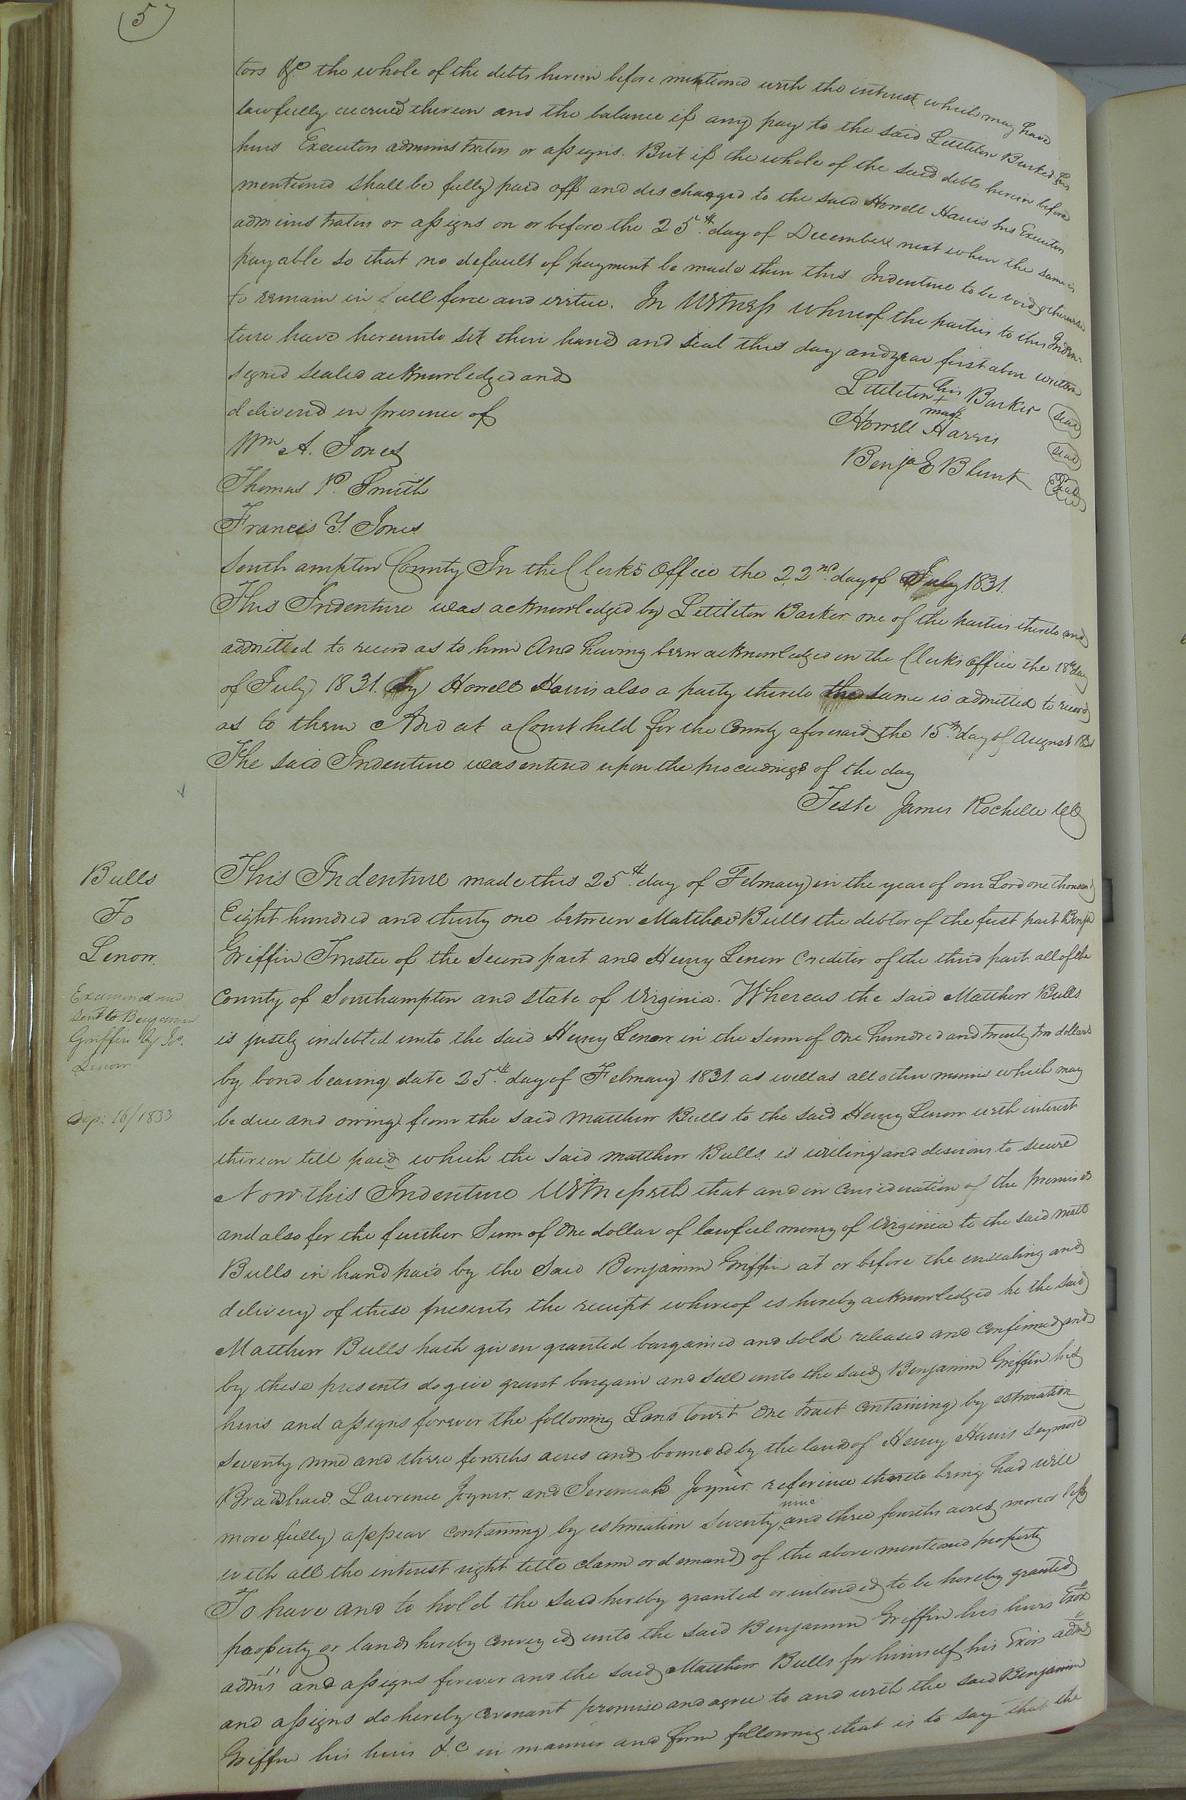 57
tors &c the whole of the debts herein before mentioned with the interest which may have
lawfully accrued thereon and the balance if any pay to the said Littleton Barker his
heirs Executors administrators or assigns. But if the whole of the said debts herein before
mentioned shall be fully paid off and discharged to the said Howell Harris his Executors
administrators or assigns on or before the 25th day of December next when the same is
payable so that no default of payment be made then this Indenture to be void otherwise
to remain in full force and virtue. In Witness whereof the parties to this Inden-
ture have hereunto set their hand and seal this day and year first above written
signed sealed acknowledged and
delivered in presence of
Wm A. Jones
Thomas P. Smith
Francis Y. Jones
Littleton his + mark Barker (seal)
Howell Harris (seal)
Benja E Blunt (seal)
Southampton County In the Clerks Office the 22nd day of July 1831.
This Indenture was acknowledged by Littleton Barker one of the parties thereto and
admitted to record as to him And having been acknowledged in the Clerks office the 18th day
of July 1831. by Howell Harris also a party thereto the same is admitted to record
as to them And at a Court held for the County aforesaid the 15th day of August 1831
The said Indenture was entered upon the proceedings of the day
Teste James Rochelle CC
Bulls
To
Lenow
Examined and
sent to Benjamin
Griffin by Jo.
Lenow
Sep: 16/1833
This Indenture made this 25th day of February in the year of our Lord one thousand
Eight hundred and thirty one between Matthew Bulls the debtor of the first part Benja
Griffin Trustee of the second part and Henry Lenow Creditor of the third part all of the
County of Southampton and State of Virginia. Whereas the said Matthew Bulls
is justly indebted unto the said Henry Lenow in the sum of One hundred and twenty two dollars
by bond bearing date 25th day of February 1831 as well as all other monies which may
be due and owing from the said Matthew Bulls to the said Henry Lenow with interest
thereon till paid which the said Matthew Bulls is willing and desirous to secure
Now this Indenture Witnesseth that and in consideration of the premises
and also for the further Sum of One dollar of lawful money of Virginia to the said Matt
Bulls in hand paid by the said Benjamin Griffin at or before the ensealing and
delivery of these presents the receipt whereof is hereby acknowledged he the said
Matthew Bulls hath given granted bargained and sold released and confirmed and
by these presents do give grant bargain and sell unto the said Benjamin Griffin his
heirs and assigns forever the following Land towit One tract containing by estimation
Seventy nine and three fourths acres and bounded by the land of Henry Harris Seymore
Bradshaw. Lawrence Joyner. and Jeremiah Joyner reference thereto being had will
more fully appear containing by estimation Seventy nine and three fourths acres more or less
with all the interest right title claim or demand of the above mentioned property
To have and to hold the said hereby granted or intended to be hereby granted
property or land hereby conveyed unto the said Benjamin Griffin his heirs Exors
admrs and assigns forever and the said Matthew Bulls for himself his Exors admrs
and assigns do hereby covenant promise and agree to and with the said Benjamin
Griffin his heirs &c in manner and form following that is to say that the